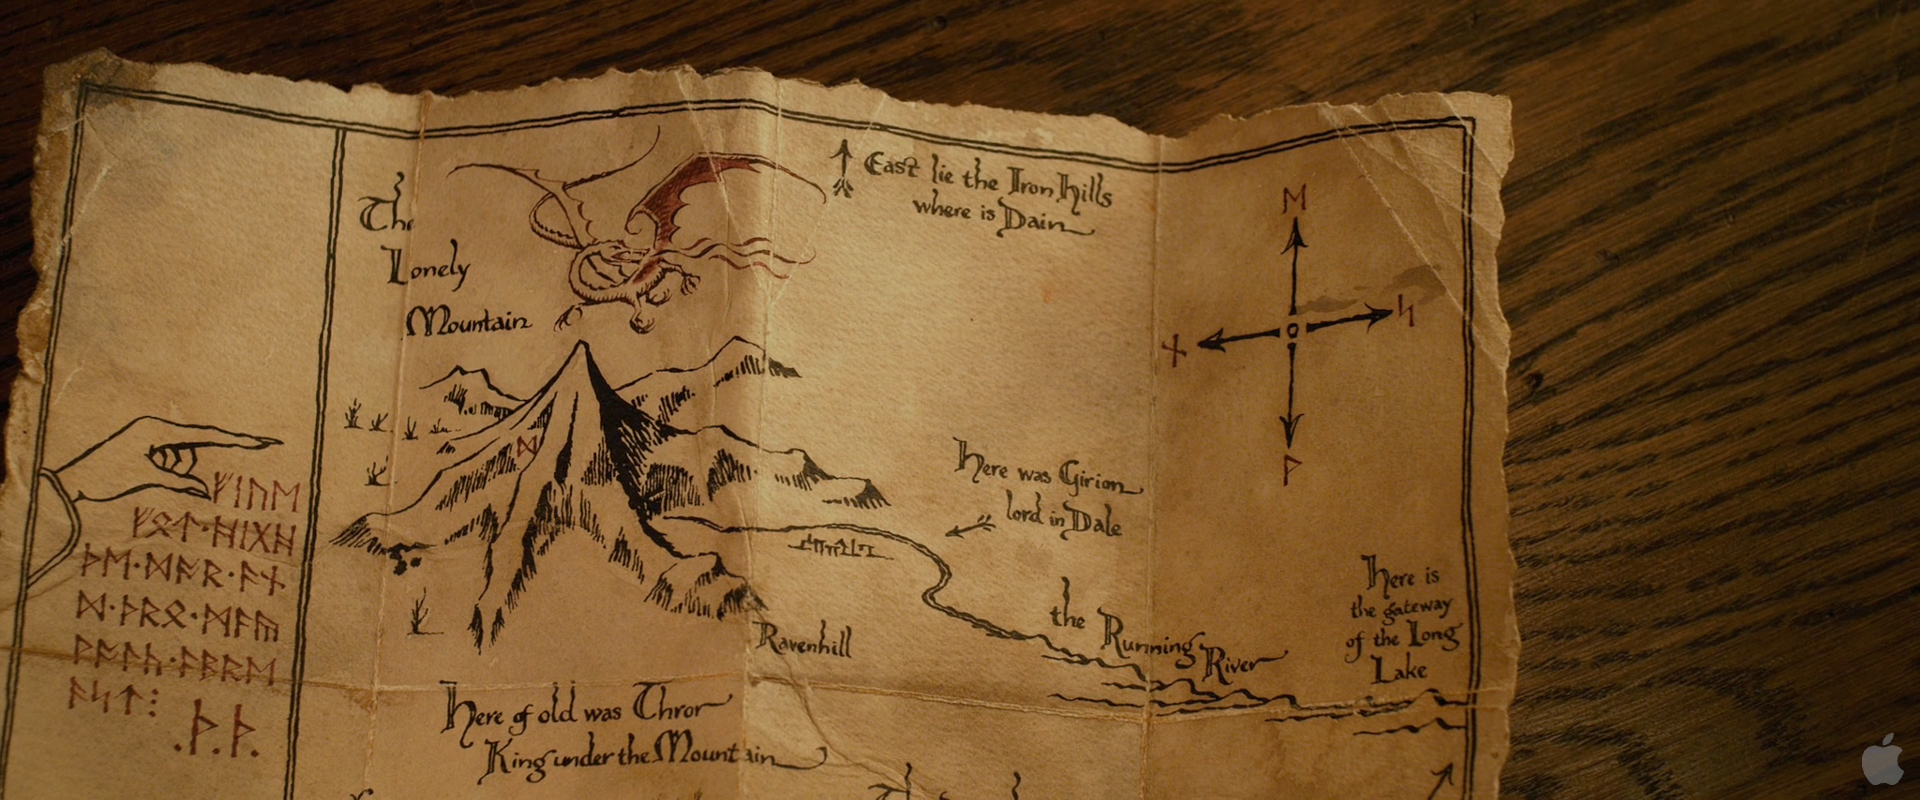 The
Lonely
Mountain
East lie the Iron Hills
where is Dain
ᛖ
ᛋ
ᚾ
ᚹ
ᛞ
Here was Girion
lord in Dale
ᚠᛁᚢᛖ
ᚠᛟᛏ·ᚻᛁᚷᚻ
ᚦᛖ·ᛞᚩᚱ·ᚪᚾ
ᛞ·ᚦᚱᛟ·ᛗᚪᚣ
ᚹᚪᛚᚳ·ᚪᛒᚱᛖ
ᚪᛋᛏ⋮
.ᚦ.ᚦ.
Here is
the gateway
of the Long
Lake
the Running
River
Ravenhill
Here of old was Thror
King under the Mountain